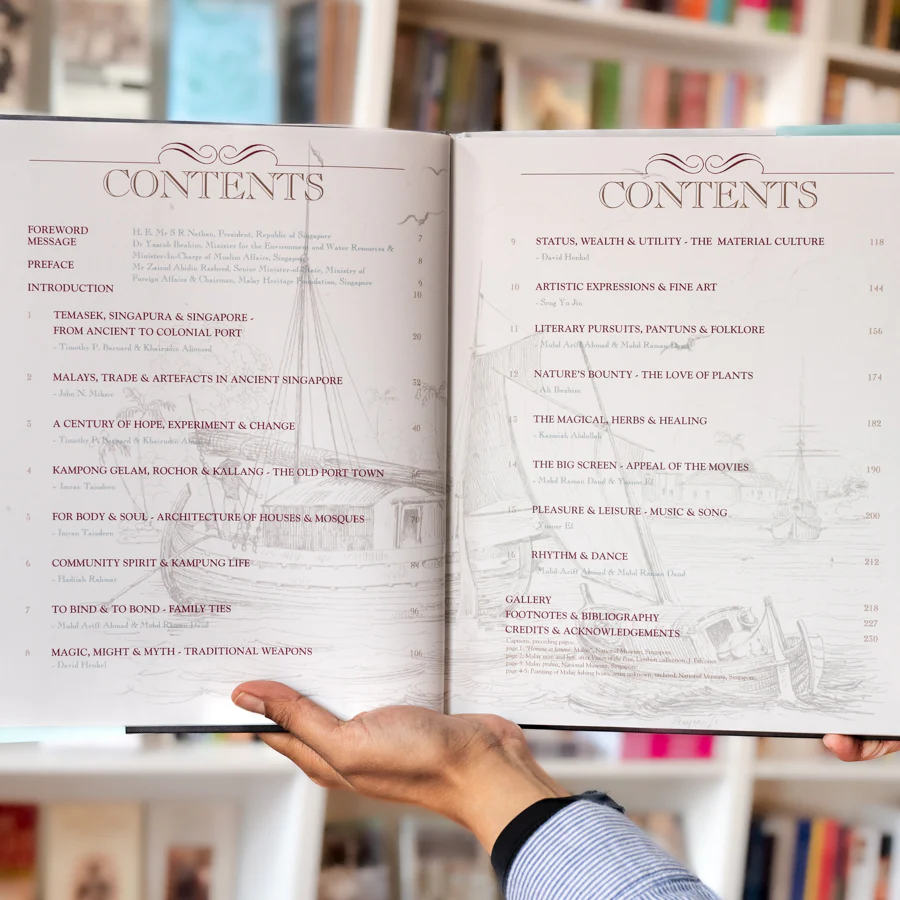 CONTENTS
FOREWORD H. E. Mr S R Nathan, President, Republic of Singapore 7
MESSAGE Dr Yaacob Ibrahim, Minister for the Environment and Water Resources &
Minister-In-Charge of Muslim Affairs, Singapore 8
PREFACE Mr Zainul Abidin Rasheed, Senior Minister-of-State, Ministry of
Foreign Affairs & Chairman, Malay Heritage Foundation, Singapore 9
INTRODUCTION 10
1 TEMASEK, SINGAPURA & SINGAPORE -
FROM ANCIENT TO COLONIAL PORT 20
- Timothy P. Barnard & Khairudin Aljunied
2 MALAYS, TRADE & ARTEFACTS IN ANCIENT SINGAPORE 32
- John N. Miksic
3 A CENTURY OF HOPE, EXPERIMENT & CHANGE 40
- Timothy P. Barnard & Khairudin Aljunied
4 KAMPONG GELAM, ROCHOR & KALLANG - THE OLD PORT TOWN
- Imran Tajudeen
5 FOR BODY & SOUL - ARCHITECTURE OF HOUSES & MOSQUES 70
- Imran Tajudeen
6 COMMUNITY SPIRIT & KAMPUNG LIFE
- Hadijah Rahmat
7 TO BIND & TO BOND - FAMILY TIES 96
- Muhd Ariff Ahmad & Muhd Raman Daud
8 MAGIC, MIGHT & MYTH - TRADITIONAL WEAPONS 106
- David Henkel
CONTENTS
9 STATUS, WEALTH & UTILITY - THE MATERIAL CULTURE 118
- David Henkel
10 ARTISTIC EXPRESSIONS & FINE ART 144
- Seng Yu Jin
11 LITERARY PURSUITS, PANTUNS & FOLKLORE 156
- Muhd Ariff Ahmad & Muhd Raman Daud
12 NATURE'S BOUNTY - THE LOVE OF PLANTS 174
- Ali Ibrahim
13 THE MAGICAL, HERBS & HEALING 182
- Kamsiah Abdullah
14 THE BIG SCREEN - APPEAL OF THE MOVIES 190
- Muhd Raman Daud & Yusnor Ef
15 PLEASURE & LEISURE - MUSIC & SONG 200
- Yusnor Ef
16 RHYTHM & DANCE 212
- Muhd Ariff Ahmad & Muhd Raman Daud
GALLERY 218
FOOTNOTES & BIBLIOGRAPHY 227
CREDITS & ACKNOWLEDGEMENTS 230
Captions, preceding pages:
page 3: Malay prahu, National Museum, Singapore.
page 4-5: Painting of Malay fishing boats, artist unknown, undated, National Museum, Singapore.